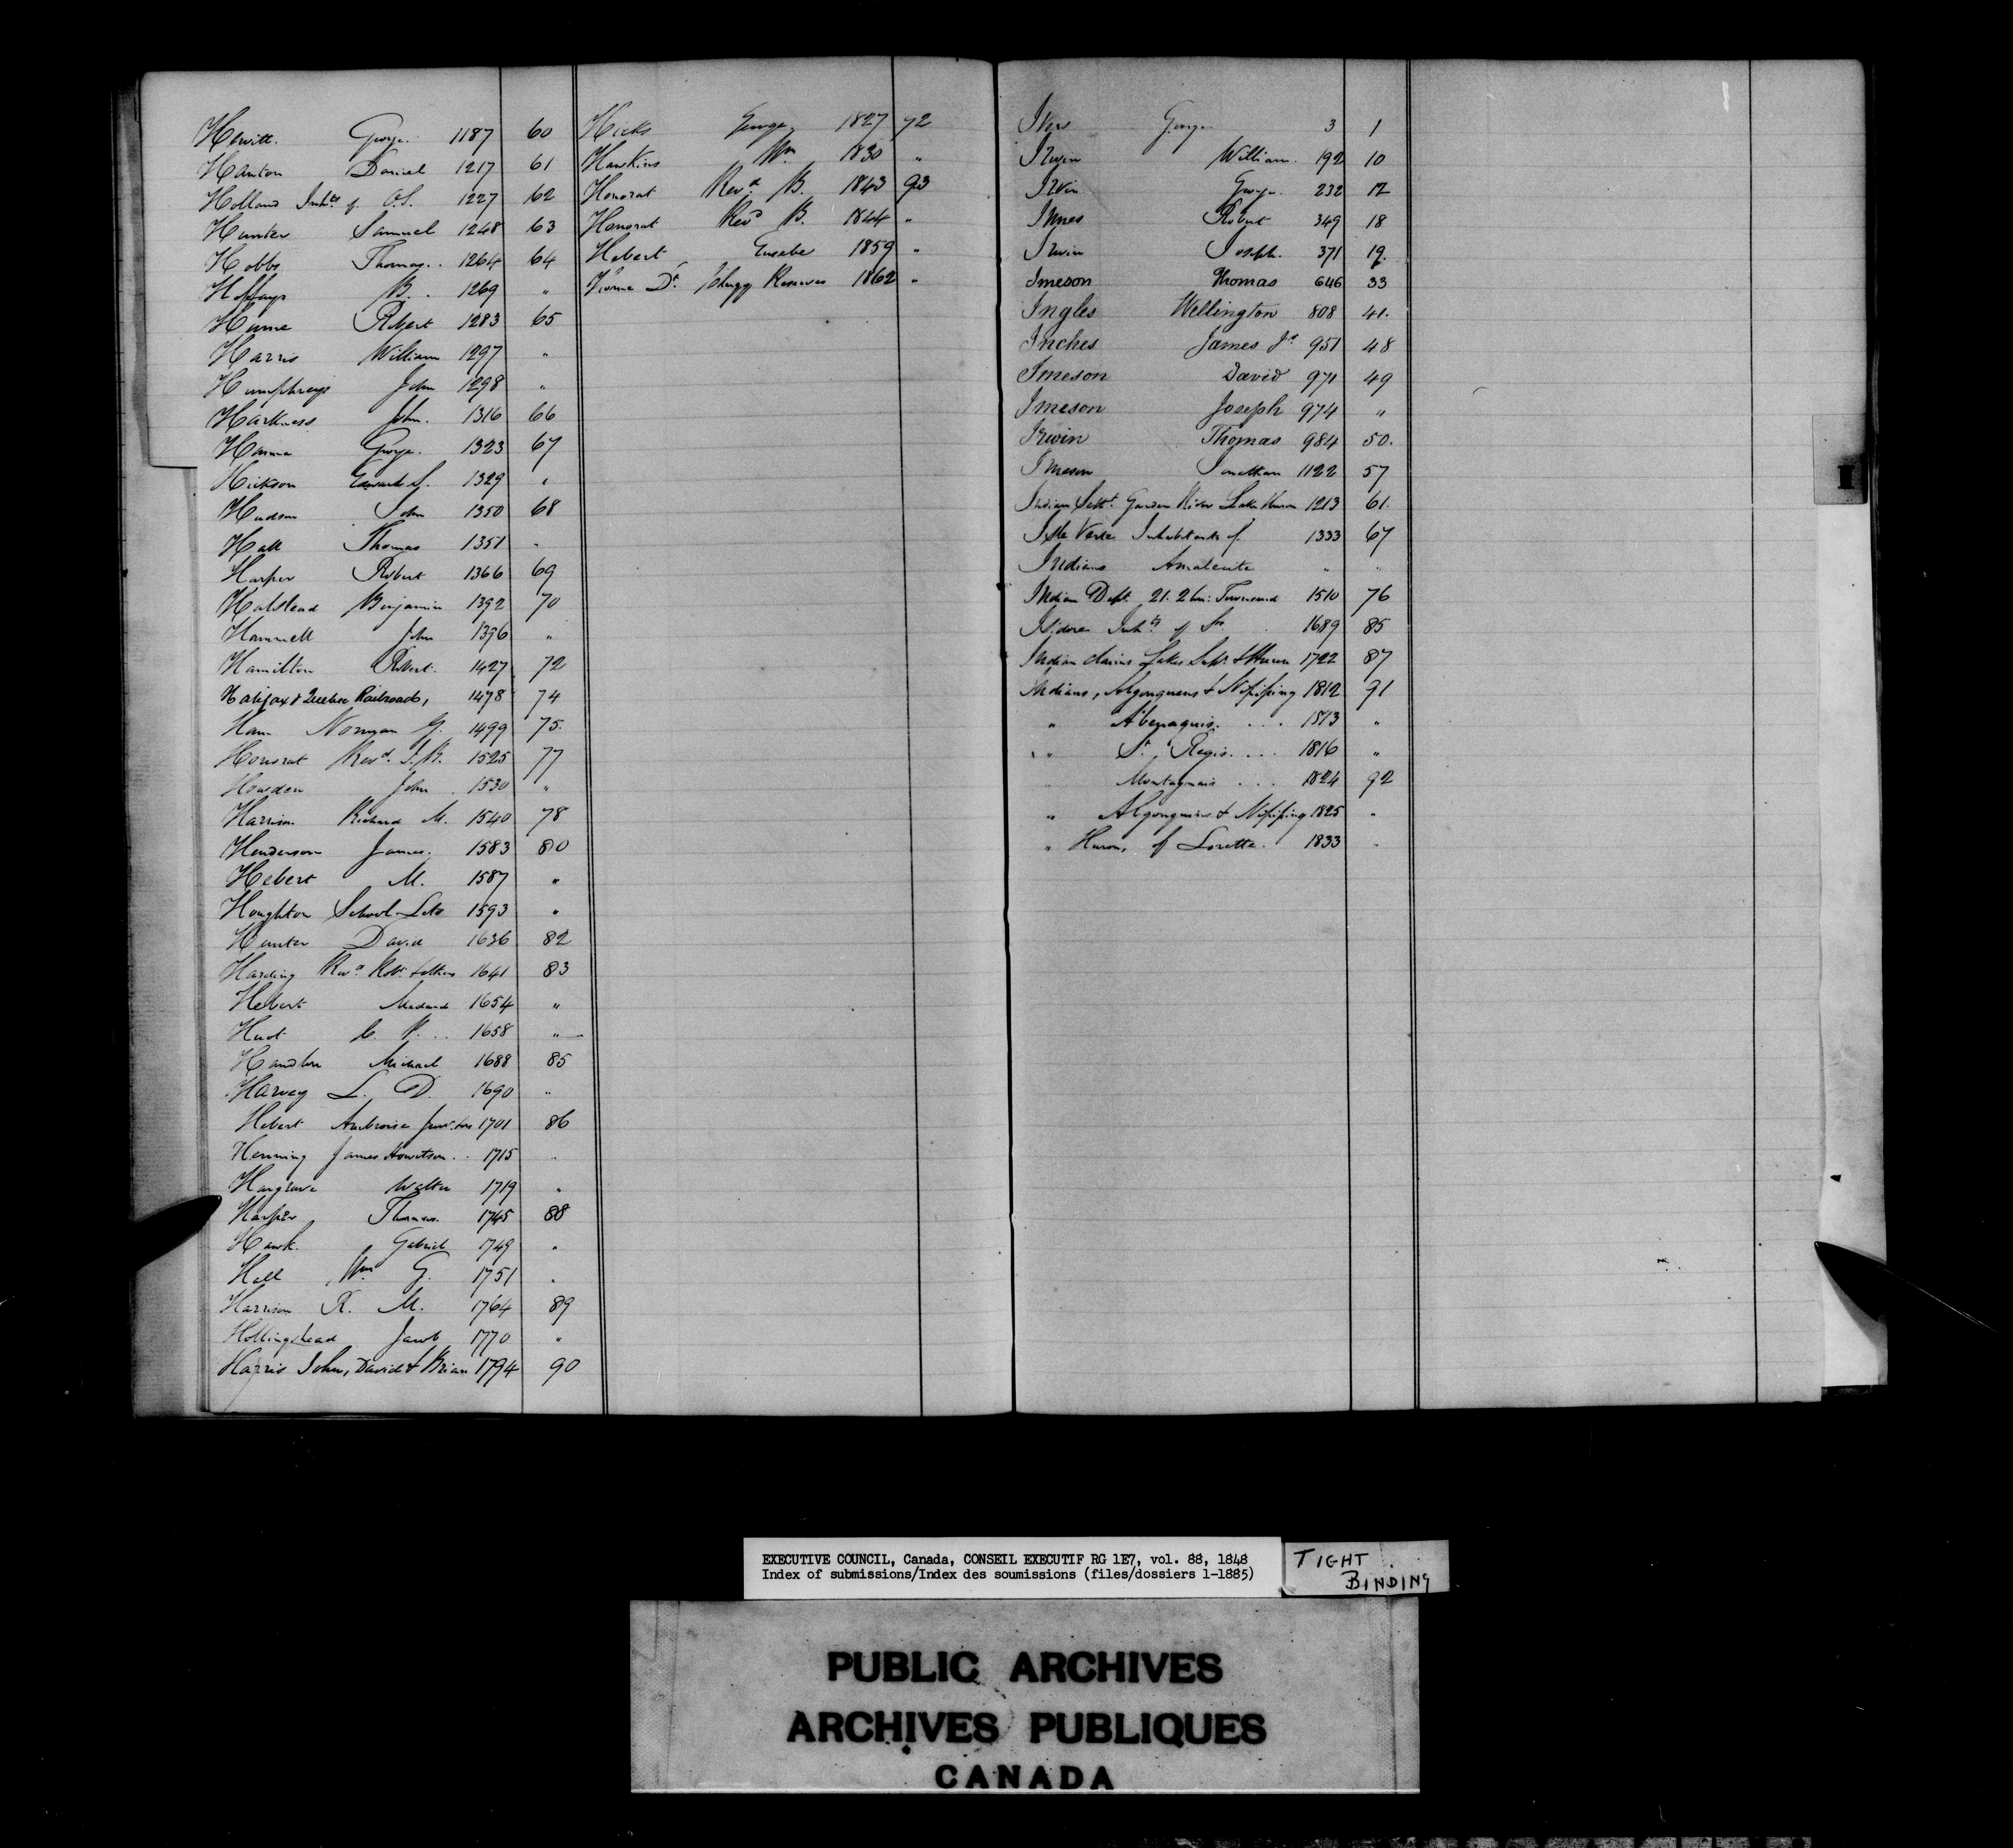 Hewitt. George. 1187 60
Hanton Daniel 1217 61
Holland Inhts of O.S. 1227 62
Hunter Samuel 1248 63
Hobbs Thomas. 1264 64
B. 1269 "
Hume Robert 1283 65
Harris William 1297 "
Humphreys John 1298 "
Harkness John. 1316 66
Hanna George. 1323 67
Hickson Edward S. 1329 "
Hudson John 1350 68
Hall Thomas 1351 "
Harper Robert 1366 69
Halstead Benjamin 1392 70
Hammell John 1396 "
Hamilton Robert. 1427 72
Halifax & Quebec Railroads, 1478 74
Ham Norman G. 1499 75.
Honorat Revd. J. B. 1525 77
Howden John 1530 "
Harrison Richard M. 1540 78
Henderson James. 1583 80
Hebert M. 1587 "
Houghton School Lots 1593 "
Hunter David 1636 82
Harding Revd. Robt. & others 1641 83
Hebert Medard 1654 "
Huot C. P. 1658 "
Michael 1688 85
Harvey L. D. 1690 "
Hebert Ambroise 1701 86
Henning James Howitson 1715 "
Hargrave Walter 1719 "
Harper Thomas. 1745 88
Hawk. Gabriel 1749 "
Hall Wm G. 1751 "
Harrison R. M. 1764 89
Hollingshead Jacob 1770 "
Harris John, David & Brian 1794 90
Hicks George 1827 92
Hawkins Wm 1830 "
Honorat Revd. B. 1843 93
Honorat Revd B. 1844 "
Hebert Eusebe 1859 "
Home Dt. Clergy Reserves 1862 "
George 3 1
Irwin William. 192 10
Irvin George 232 12
Innes Robert 349 18
Irwin Joseph. 371 19.
Imeson Thomas 646 33
Ingles Wellington 808 41.
Inches James Jr. 951 48
Imeson David 971 49
Imeson Joseph 974 "
Irwin Thomas 984 50.
Imeson Jonathan 1122 57
Indian Settt. Garden River Lake Huron 1213 61.
Isle Verte Inhabitants of 1333 67
Indians Amalecite " "
Indian Dept. 21. 2 Con: Townsend 1510 76
Isidore Inhts of St. 1689 85
Indian claims Lakes Supr & Huron 1722 87
Indians, Algonquins & Nipissing 1812 91
" Abenaquis. . . . 1813 "
" St. Regis. . . . 1816 "
" Montagnais . . . 1824 92
" Algonquins & Nipissing 1825 "
" Huron, of Lorette. 1833 "
I
EXECUTIVE COUNCIL, Canada, CONSEIL EXECUTIF RG 1E7, vol. 88, 1848
Index of submissions/Index des soumissions (files/dossiers 1-1885)
TIGHT
BINDING
PUBLIC ARCHIVES
ARCHIVES PUBLIQUES
CANADA